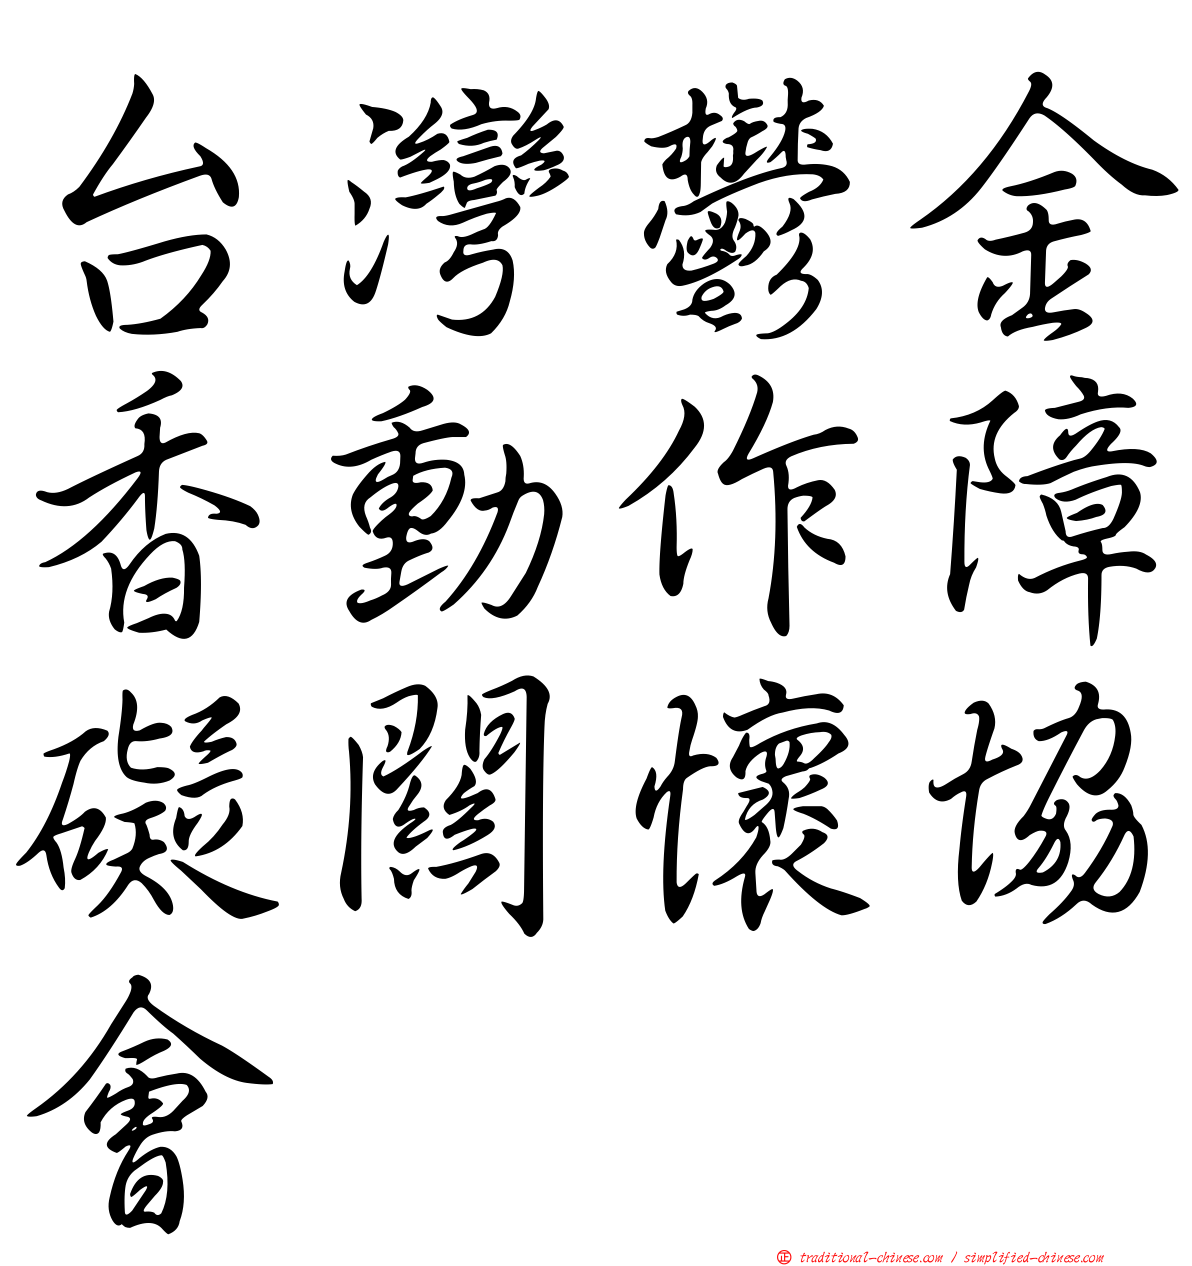 台灣鬱金
香動作障
礙關懷協
會
正 traditional-chinese.com / simplified-chinese.com